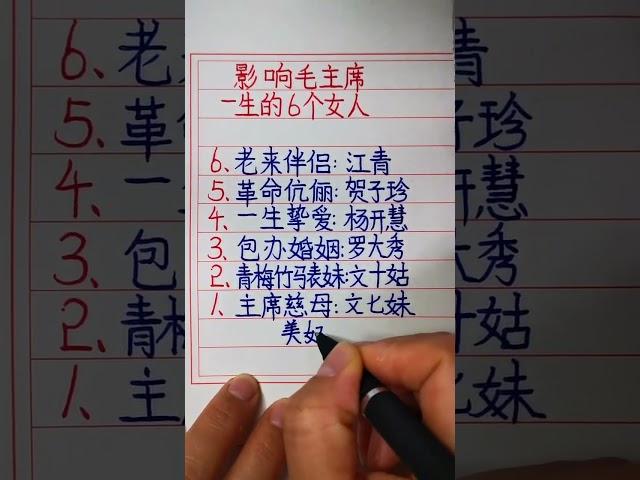 影响毛主席
一生的6个女人
6、老来伴侣:江青
5、革命伉俪:贺子珍
4、一生挚爱:杨开慧
3、包办婚姻:罗大秀
2、青梅竹马表妹:文十姑
1、主席慈母:文七妹
美好